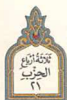 ثلاثة أرباع
الحزب
٢١